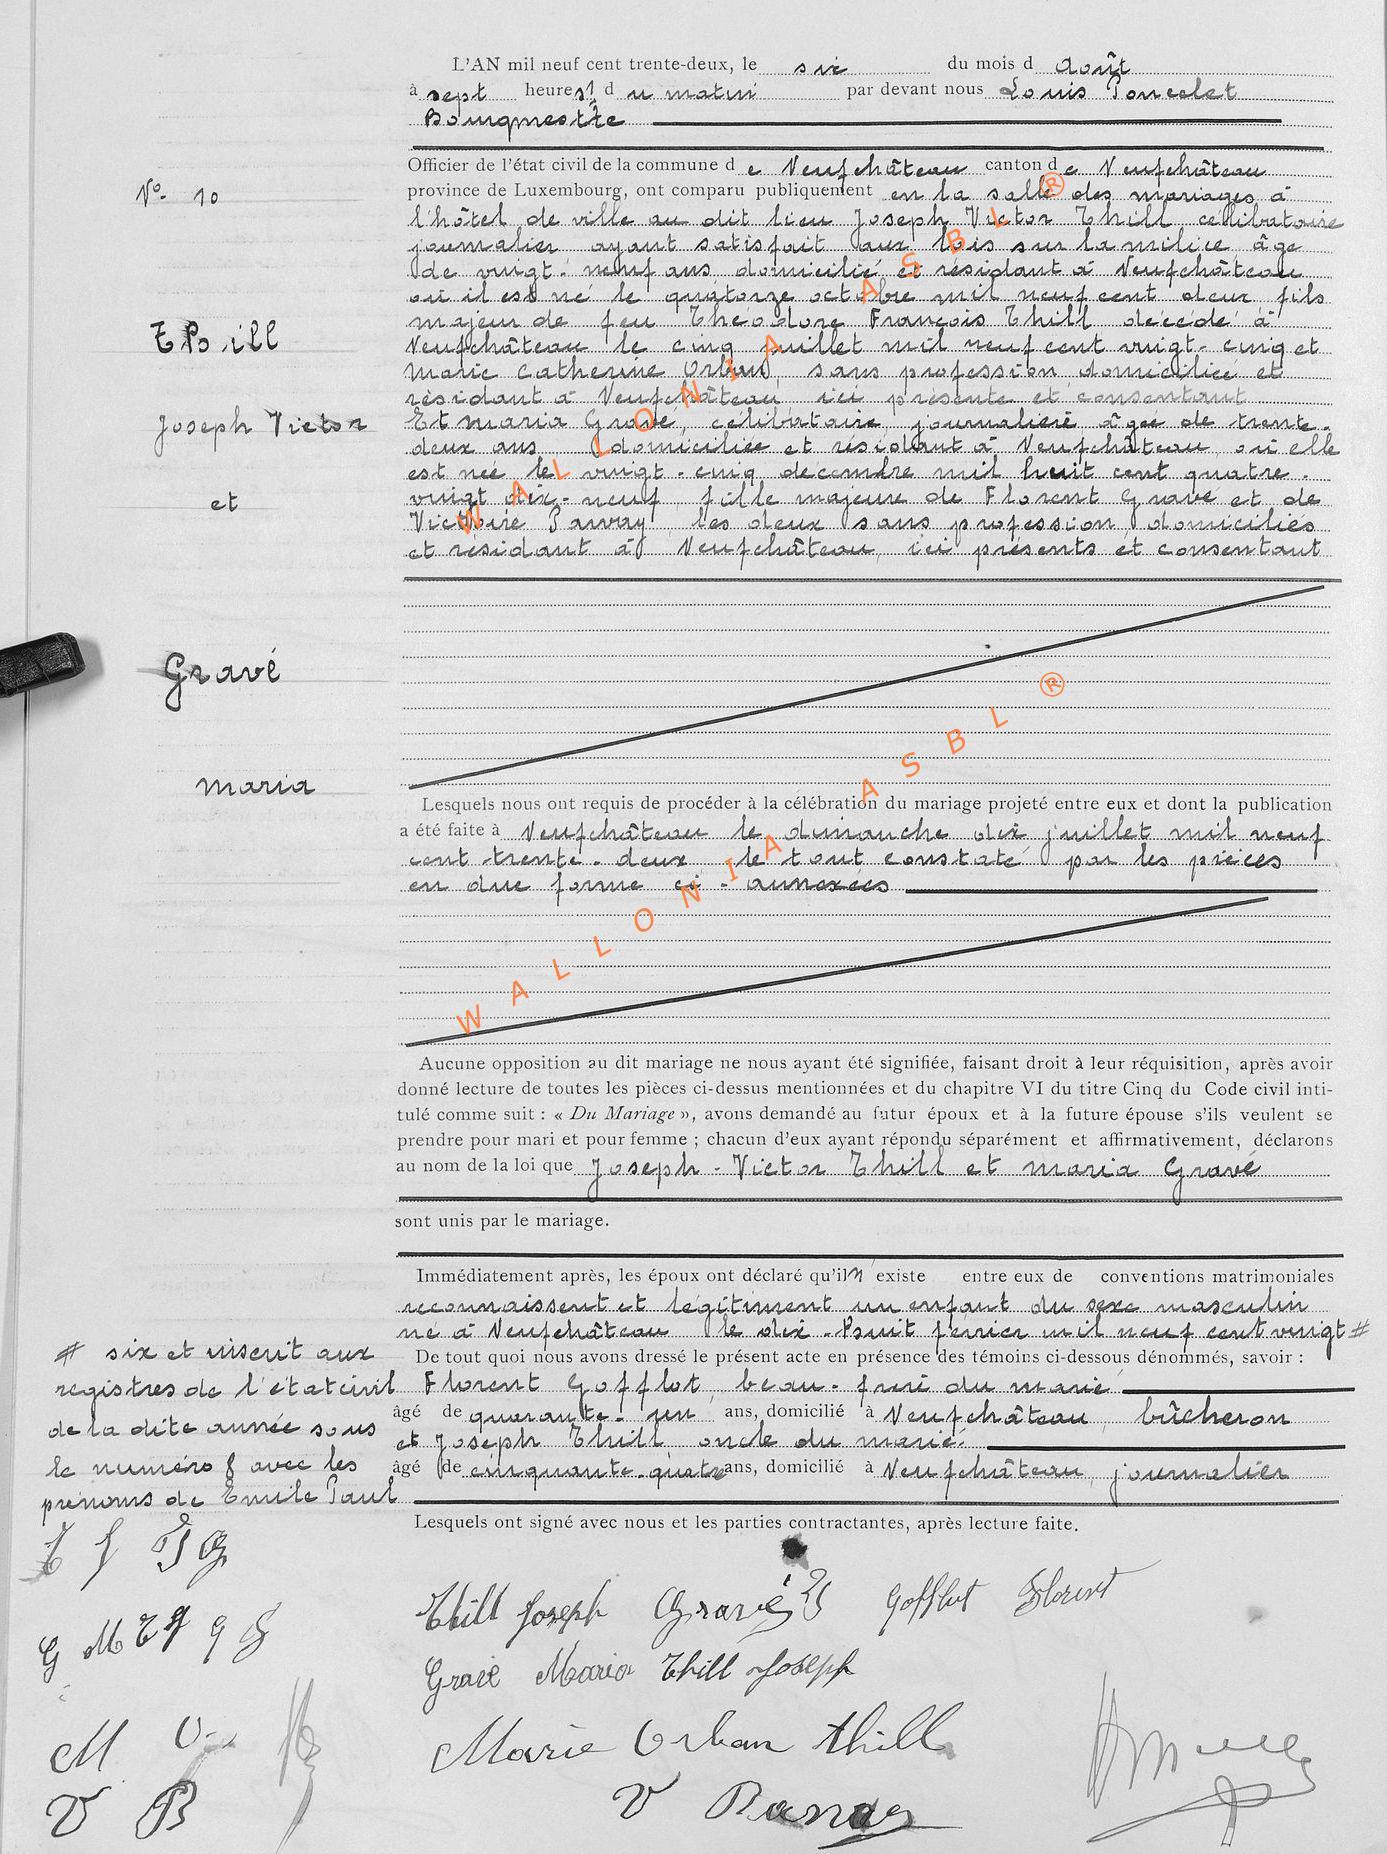 L'AN mil neuf cent trente-deux, le six du mois d Août
à sept heures d u matin par devant nous Louis Poncelet
Bourgmestre
Officier de l'état civil de la commune d e Neufchâteau canton d e Neufchâteau
province de Luxembourg, ont comparu publiquement en la salle des mariages à
N° 10
l'hôtel de ville au dit lieu Joseph Victor Thill célibataire
journalier ayant satisfait aux lois sur la milice âgé
de vingt-neuf ans domicilié et résidant à Neufchâteau
où il est né le quatorze octobre mil neuf cent deux fils
majeur de feu Théodore François Thill décédé à
Thill
Neufchâteau le cinq juillet mil neuf cent vingt-cinq et
Marie Catherine Orban, sans profession domiciliée et
résidant à Neufchâteau ici présente et consentant
Joseph Victor
Et Maria Gravé, célibataire, journalière âgée de trente-
deux ans, domiciliée et résidant à Neufchâteau, où elle
est née le vingt-cinq décembre mil huit cent quatre-
et
vingt dix-neuf, fille majeure de Florent Gravé et de
Victoire les deux sans profession domiciliés
et résidant à Neufchâteau, ici présents et consentant
Gravé
Maria
Lesquels nous ont requis de procéder à la célébration du mariage projeté entre eux et dont la publication
a été faite à Neufchâteau le dimanche dix juillet mil neuf
cent trente-deux le tout constaté par les pièces
en due forme ci-annexées
Aucune opposition au dit mariage ne nous ayant été signifiée, faisant droit à leur réquisition, après avoir
donné lecture de toutes les pièces ci-dessus mentionnées et du chapitre VI du titre Cinq du Code civil inti-
tulé comme suit : « Du Mariage », avons demandé au futur époux et à la future épouse s'ils veulent se
prendre pour mari et pour femme ; chacun d'eux ayant répondu séparément et affirmativement, déclarons
au nom de la loi que Joseph-Victor Thill et Maria Gravé
sont unis par le mariage.
Immédiatement après, les époux ont déclaré qu'il n'existe entre eux de conventions matrimoniales
reconnaissent et légitiment un enfant du sexe masculin
né à Neufchâteau le dix-huit février mil neuf cent vingt #
# six et inscrit aux
registres de l'état civil
de la dite année sous
le numéro 8 avec les
prénoms de Emile Paul
De tout quoi nous avons dressé le présent acte en présence des témoins ci-dessous dénommés, savoir :
Florent Gofflot, beau-frère du marié
âgé de quarante-un ans, domicilié à Neufchâteau, bûcheron
et Joseph Thill oncle du marié
âgé de cinquante-quatre ans, domicilié à Neufchâteau, journalier
Lesquels ont signé avec nous et les parties contractantes, après lecture faite.
Thill Joseph Gravé Gofflot Florent
Gravé Maria Thill Joseph
Marie Orban Thill
V
M O
V B
WALLONIA ASBL ®
WALLONIA ASBL ®